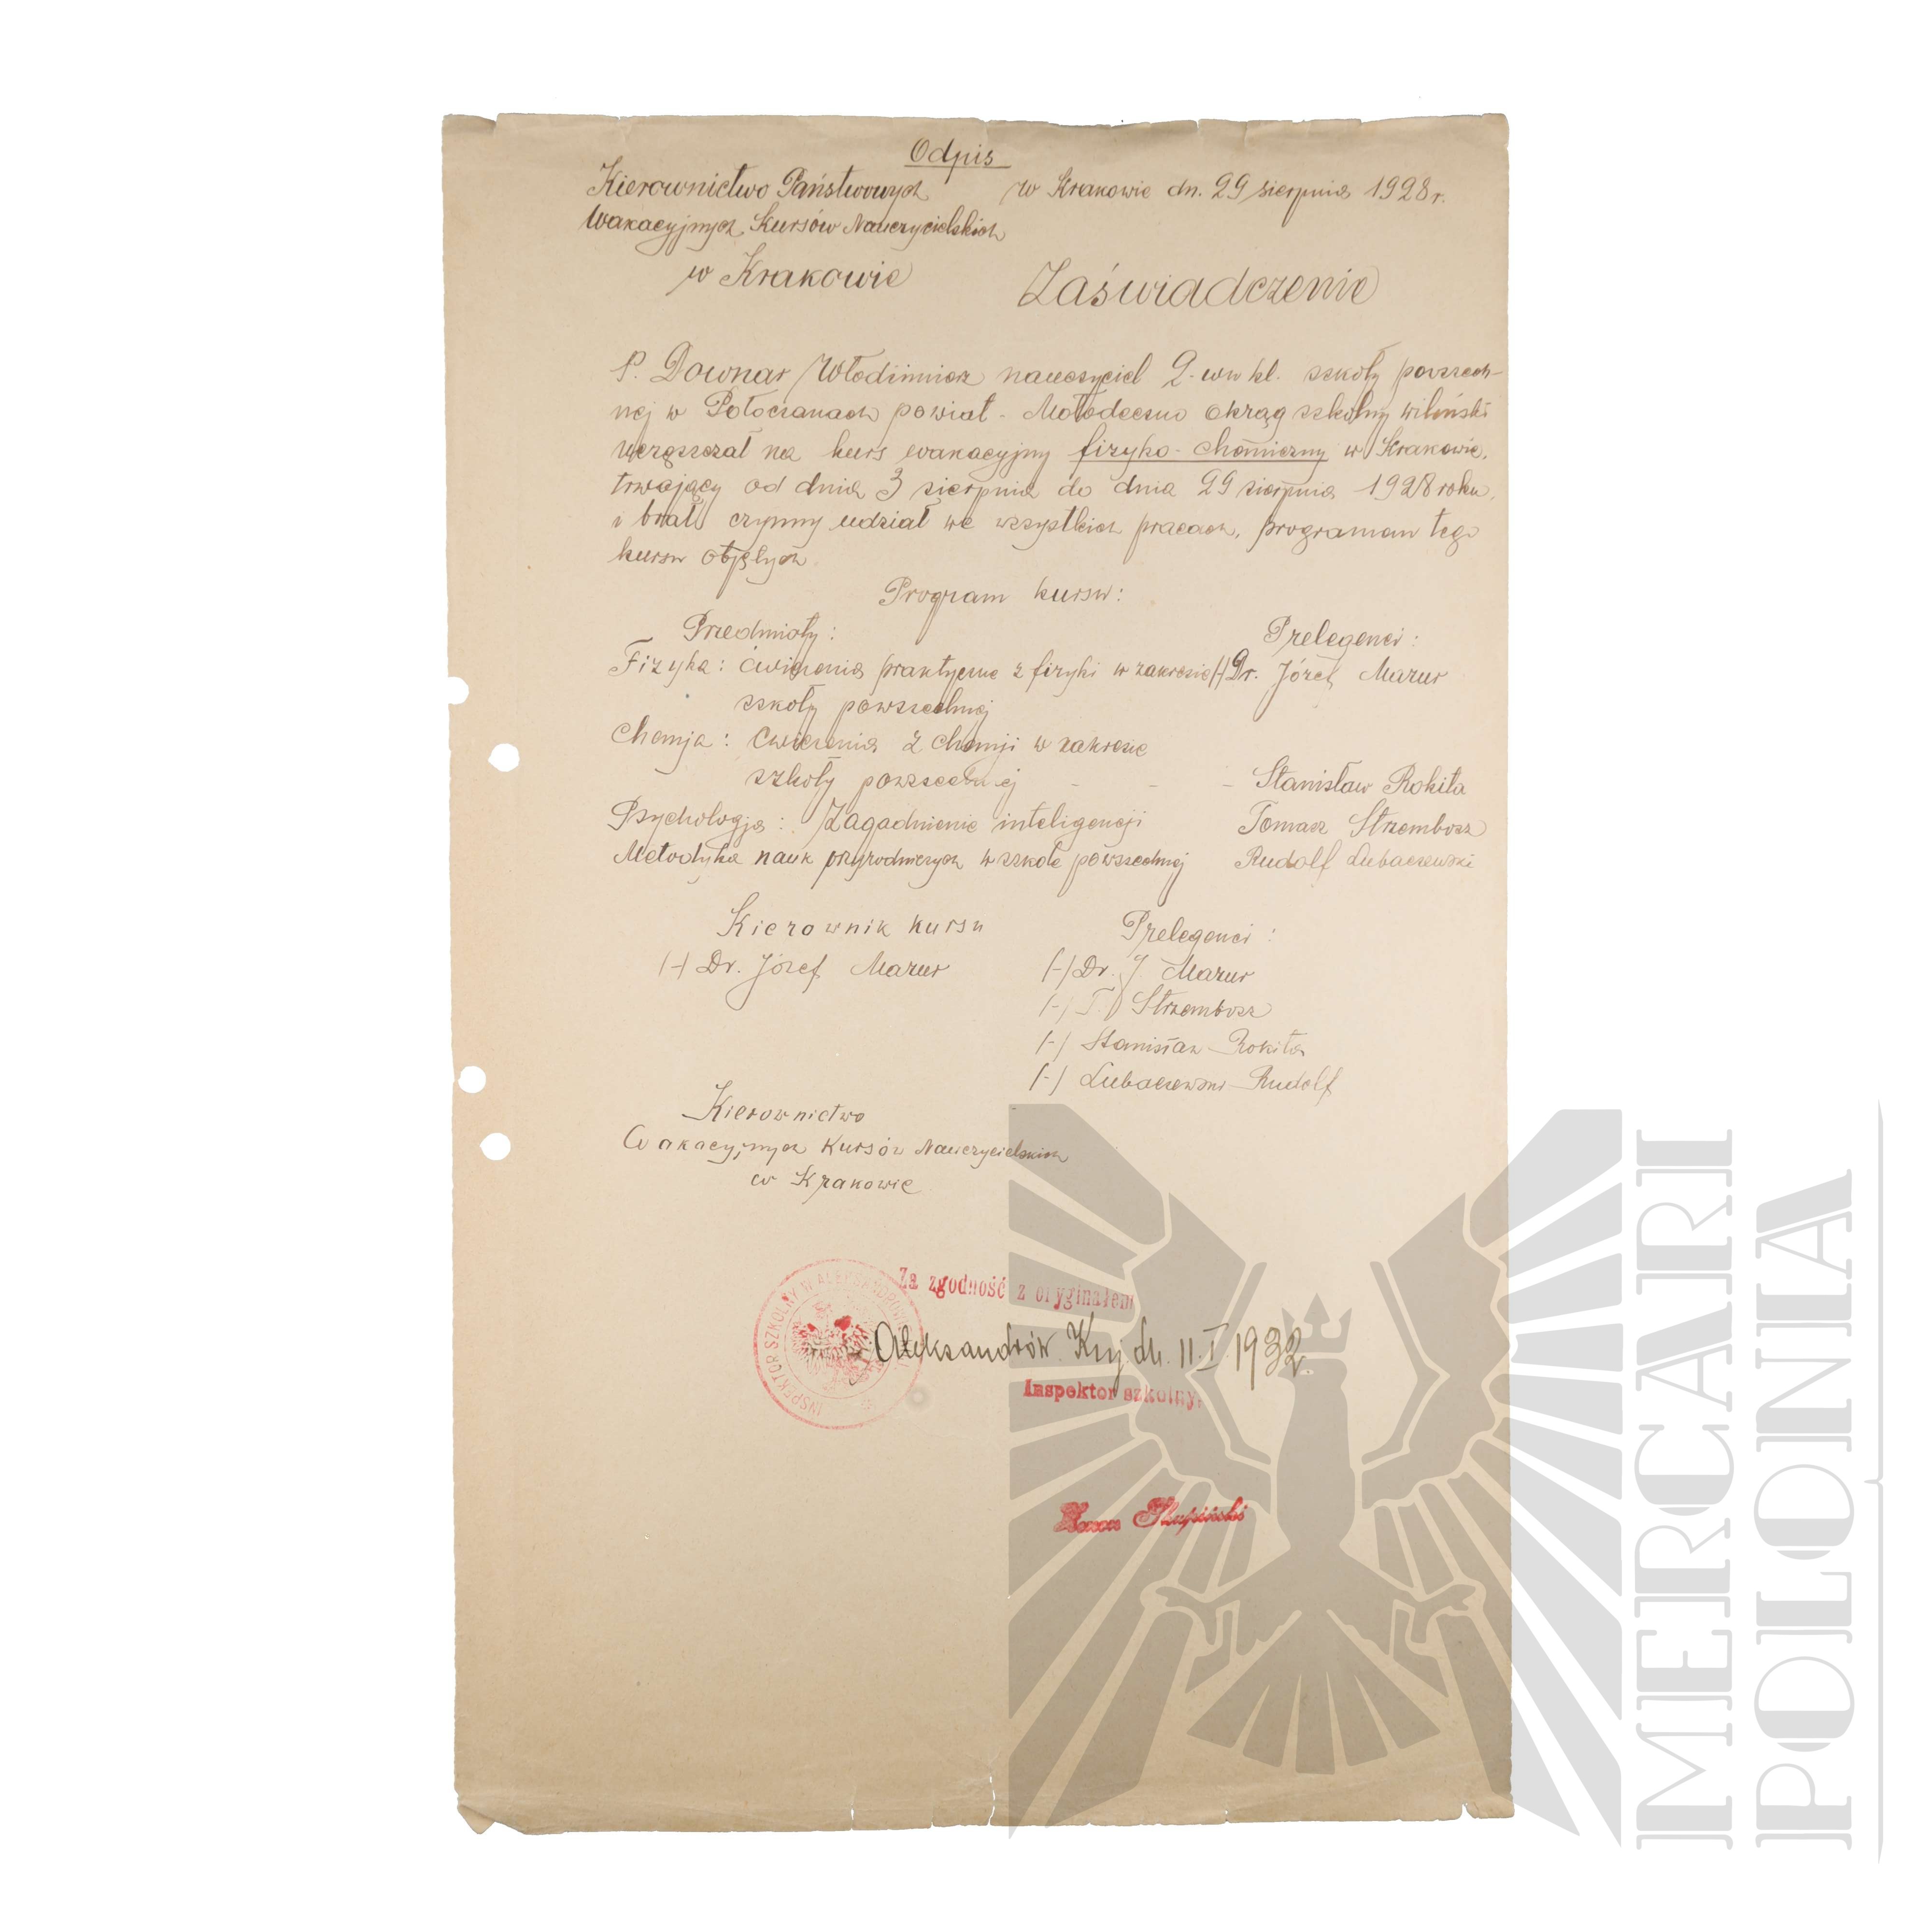 Odpis
Kierownictwo Państwowych
w Krakowie dn. 29 sierpnia 1928 r.
Wakacyjnych Kursów Nauczycielskich
w Krakowie
Zaświadczenie
P. Downar Włodzimierz nauczyciel 2-wu kl. szkoły powszech-
nej w Połoczanach powiat - Mołodeczno okrąg szkolny wileński
uczęszczał na kurs wakacyjny fizyko-chemiczny w Krakowie,
trwający od dnia 3 sierpnia do dnia 29 sierpnia 1928 roku,
i brał czynny udział we wszystkich pracach, programem tego
kursu objętych
Program kursu:
Przedmioty:
Prelegenci:
Fizyka: ćwiczenia praktyczne z fizyki w zakresie (-) Dr. Józef Mazur
szkoły powszechnej
Chemja: Ćwiczenia z chemji w zakresie
szkoły powszechnej - - - Stanisław Rokita
Psychologja: Zagadnienie inteligencji Tomasz Strzembosz
Metodyka nauk przyrodniczych w szkole powszechnej Rudolf Lubaczewski
Kierownik kursu
Prelegenci:
(-) Dr. Józef Mazur
(-) Dr. J. Mazur
(-) T. Strzembosz
(-) Stanisław Rokita
(-) Lubaczewski Rudolf
Kierownictwo
Wakacyjnych Kursów Nauczycielskich
w Krakowie
INSPEKTOR SZKOLNY W ALEKSANDROWIE
Za zgodność z oryginałem
Aleksandrów Kuj. dn. 11.I.1932
Inspektor szkolny.
Słupiński
MERCARI
POLONIA